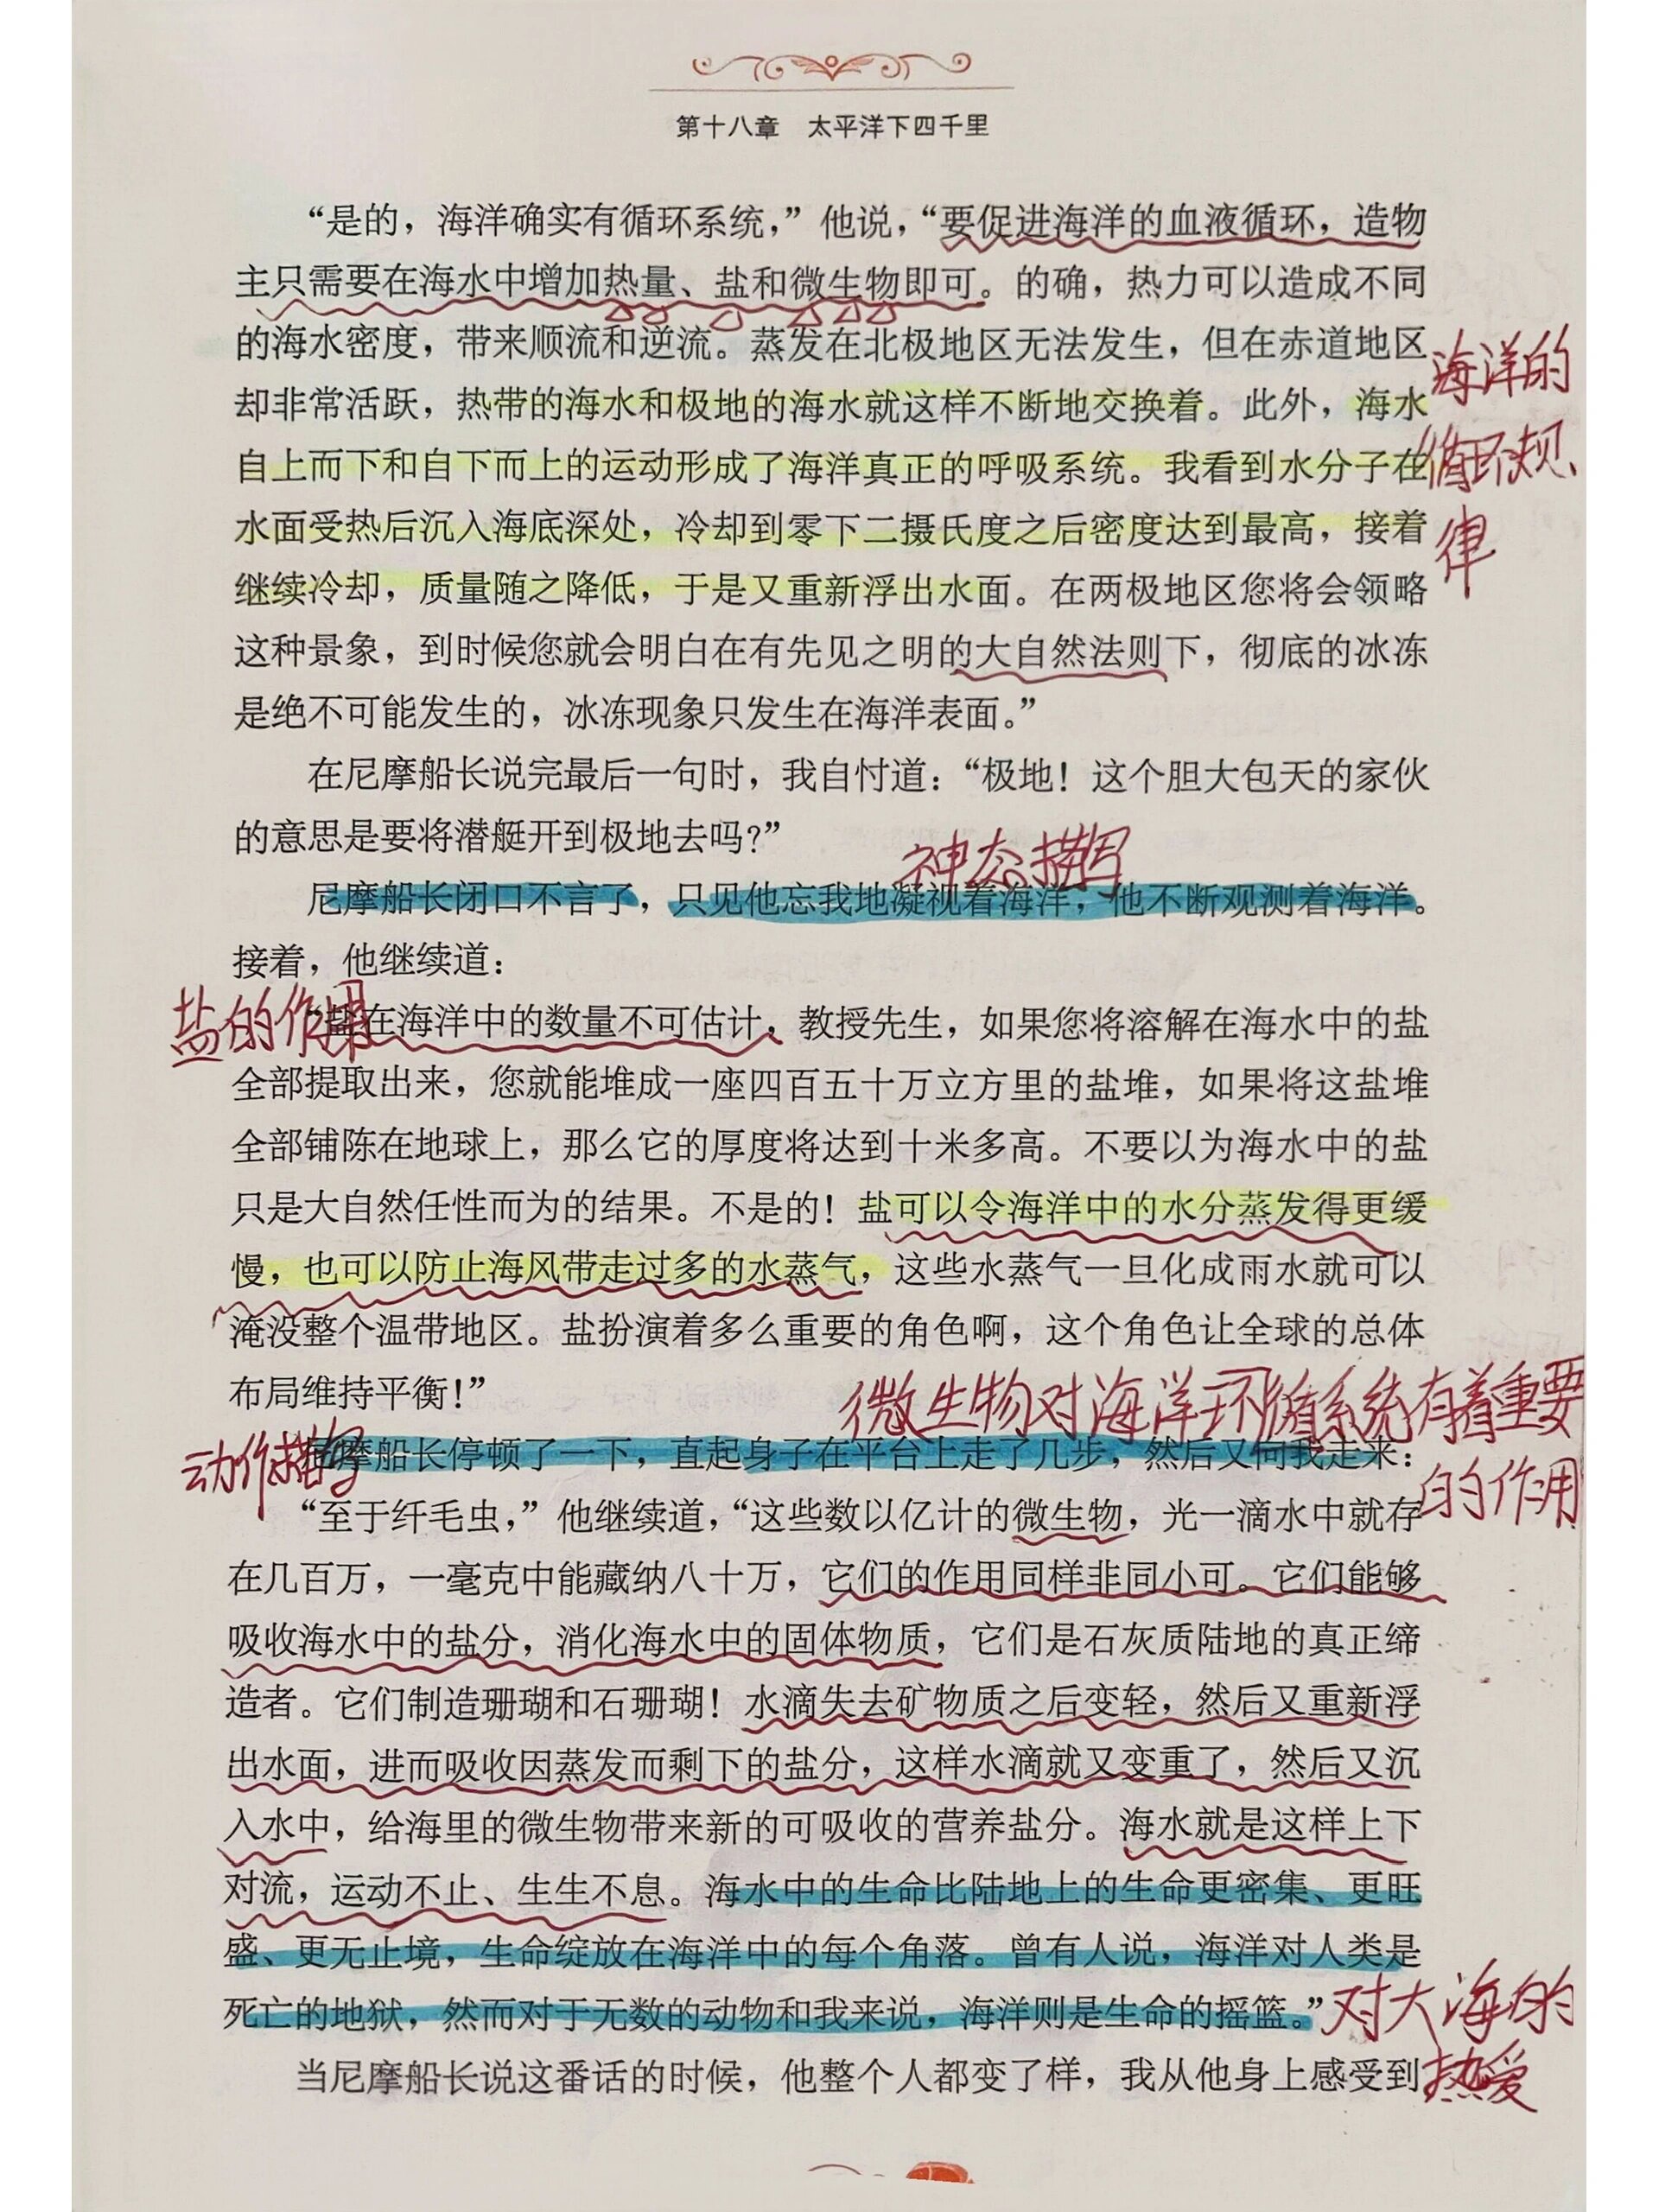 第十八章　太平洋下四千里
“是的，海洋确实有循环系统，”他说，“要促进海洋的血液循环，造物
主只需要在海水中增加热量、盐和微生物即可。的确，热力可以造成不同
的海水密度，带来顺流和逆流。蒸发在北极地区无法发生，但在赤道地区
海洋的
却非常活跃，热带的海水和极地的海水就这样不断地交换着。此外，海水
自上而下和自下而上的运动形成了海洋真正的呼吸系统。我看到水分子在
循环规
水面受热后沉入海底深处，冷却到零下二摄氏度之后密度达到最高，接着
律
继续冷却，质量随之降低，于是又重新浮出水面。在两极地区您将会领略
这种景象，到时候您就会明白在有先见之明的大自然法则下，彻底的冰冻
是绝不可能发生的，冰冻现象只发生在海洋表面。”
在尼摩船长说完最后一句时，我自忖道：“极地！这个胆大包天的家伙
的意思是要将潜艇开到极地去吗？”
神态描写
尼摩船长闭口不言了，只见他忘我地凝视着海洋，他不断观测着海洋。
接着，他继续道：
盐的作用
“盐在海洋中的数量不可估计，教授先生，如果您将溶解在海水中的盐
全部提取出来，您就能堆成一座四百五十万立方里的盐堆，如果将这盐堆
全部铺陈在地球上，那么它的厚度将达到十米多高。不要以为海水中的盐
只是大自然任性而为的结果。不是的！盐可以令海洋中的水分蒸发得更缓
慢，也可以防止海风带走过多的水蒸气，这些水蒸气一旦化成雨水就可以
淹没整个温带地区。盐扮演着多么重要的角色啊，这个角色让全球的总体
布局维持平衡！”
微生物对海洋环循系统有着重要
的作用
动作描写
尼摩船长停顿了一下，直起身子在平台上走了几步，然后又向我走来：
“至于纤毛虫，”他继续道，“这些数以亿计的微生物，光一滴水中就存
在几百万，一毫克中能藏纳八十万，它们的作用同样非同小可。它们能够
吸收海水中的盐分，消化海水中的固体物质，它们是石灰质陆地的真正缔
造者。它们制造珊瑚和石珊瑚！水滴失去矿物质之后变轻，然后又重新浮
出水面，进而吸收因蒸发而剩下的盐分，这样水滴就又变重了，然后又沉
入水中，给海里的微生物带来新的可吸收的营养盐分。海水就是这样上下
对流，运动不止、生生不息。海水中的生命比陆地上的生命更密集、更旺
盛、更无止境，生命绽放在海洋中的每个角落。曾有人说，海洋对人类是
死亡的地狱，然而对于无数的动物和我来说，海洋则是生命的摇篮。”
对大海的
热爱
当尼摩船长说这番话的时候，他整个人都变了样，我从他身上感受到